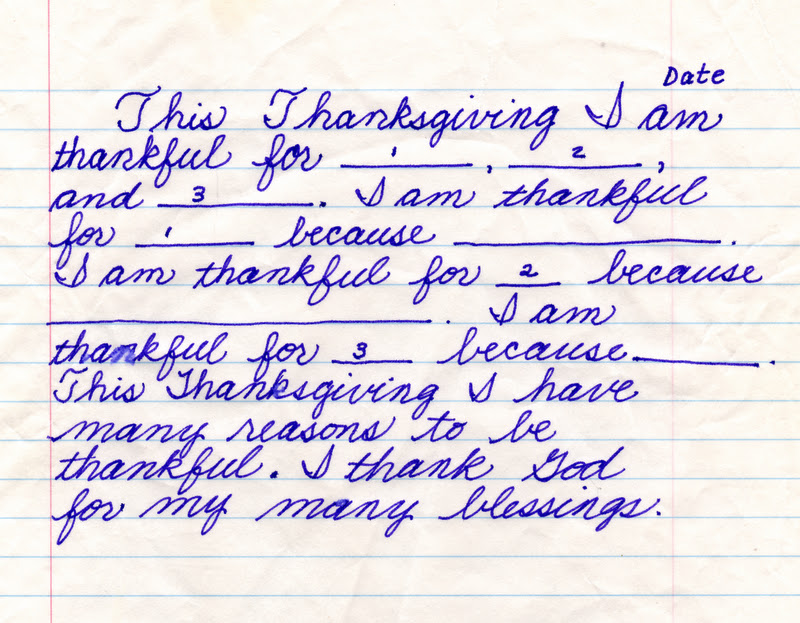 Date
This Thanksgiving I am
thankful for 1, 2,
and 3. I am thankful
for 1 because ___.
I am thankful for 2 because
___. I am
thankful for 3 because ___.
This Thanksgiving I have
many reasons to be
thankful. I thank God
for my many blessings.